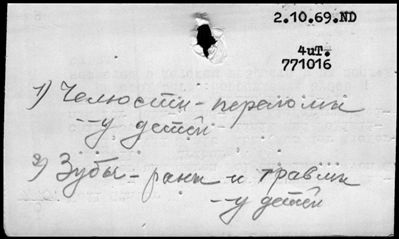 2.10.69.ND
4uT.
771016
1) Челюсти - переломы
--у детей
2) Зубы - раны и травмы
--у детей